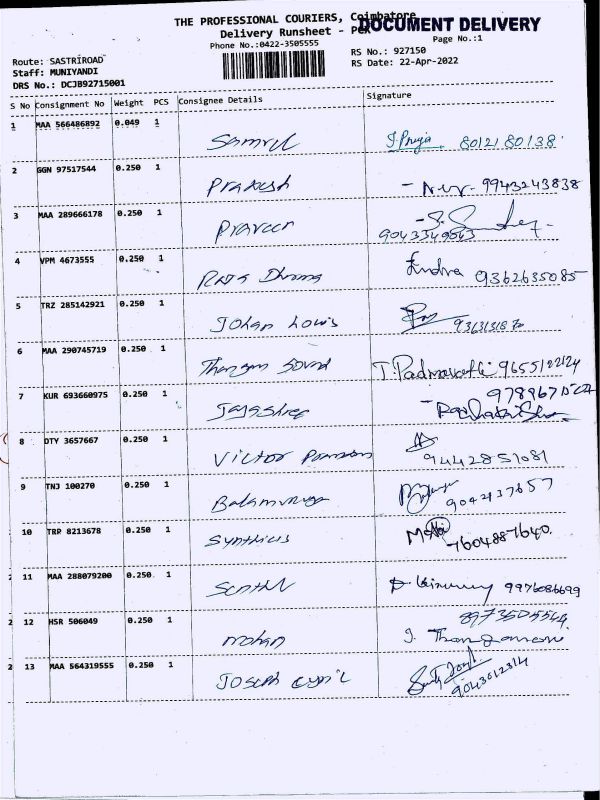 THE PROFESSIONAL COURIERS, Coimbatore
DOCUMENT DELIVERY
Delivery Runsheet - PCX
Page No.:1
Phone No.:0422-3505555
RS No.: 927150
Route: SASTRIROAD
RS Date: 22-Apr-2022
Staff: MUNIYANDI
DRS No.: DCJB92715001
S No Consignment No Weight PCS Consignee Details Signature
1 MAA 566486892 0.049 1
Samuel 8012180138
2 GGN 97517544 0.250 1
Prakash 9943243838
3 MAA 289666178 0.250 1
Praveen
4 VPM 4673555 0.250 1
Raja Dhrma Indra 9362635085
5 TRZ 285142921 0.250 1
Johan Louis
6 MAA 290745719 0.250 1
T. Padmavathi 9655122124
7 KUR 693660975 0.250 1
Jayashree
8 OTY 3657667 0.250 1
Victor 9442851081
9 TNJ 100270 0.250 1
Balamuruga 9042137657
10 TRP 8213678 0.250 1
7604887640.
11 MAA 288079200 0.250 1
Senthil 9976086699
12 HSR 506049 0.250 1
8973505544.
Mohan
13 MAA 564319555 0.250 1
Joseph Cyril 9043012314